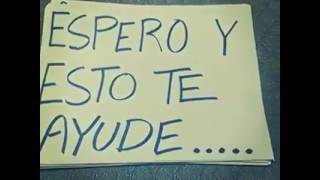 ESPERO Y
ESTO TE
AYUDE.....